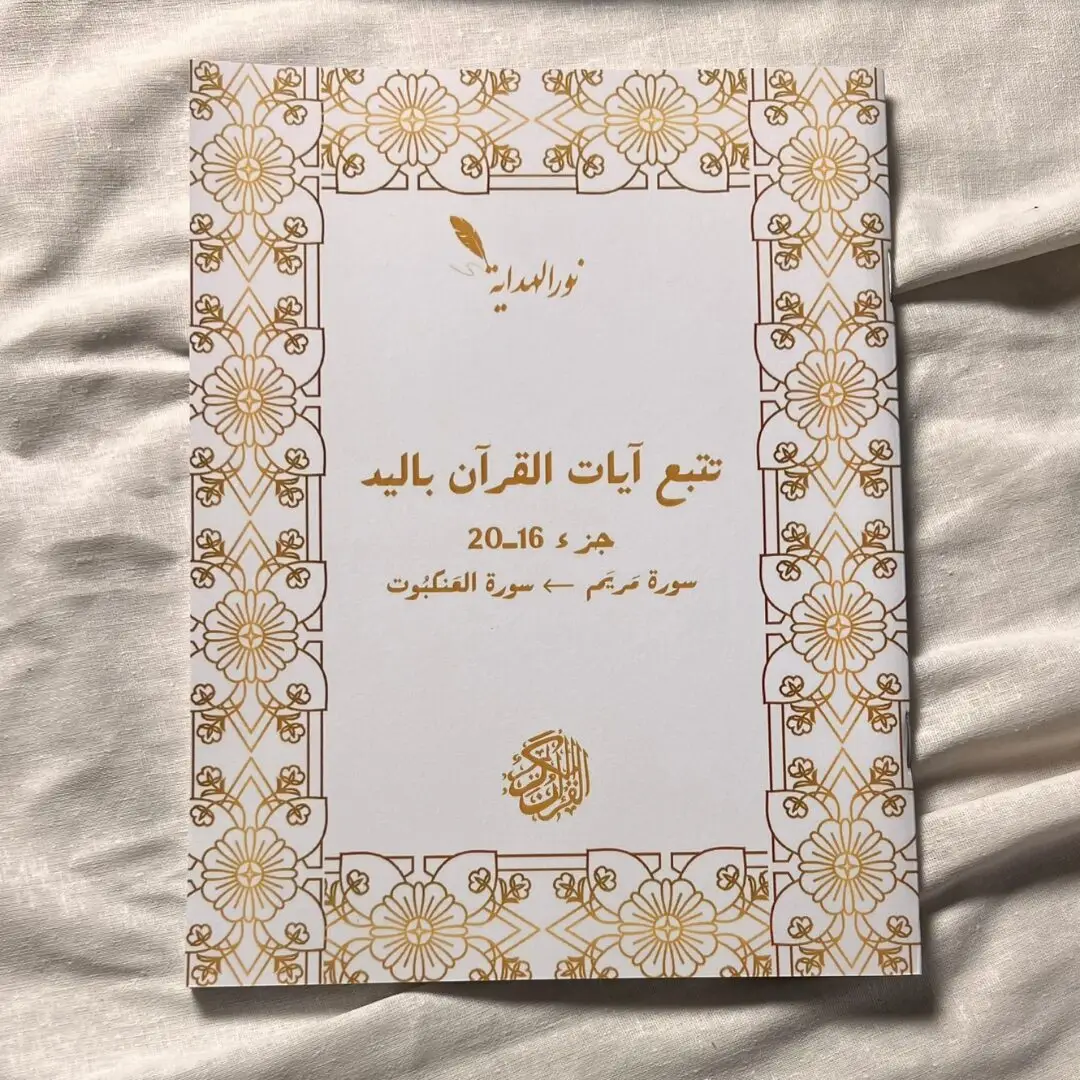 نور الهداية
تتبع آيات القرآن باليد
جزء 16-20
سورة مَريَم ← سورة العَنكبُوت
القرآن الكريم